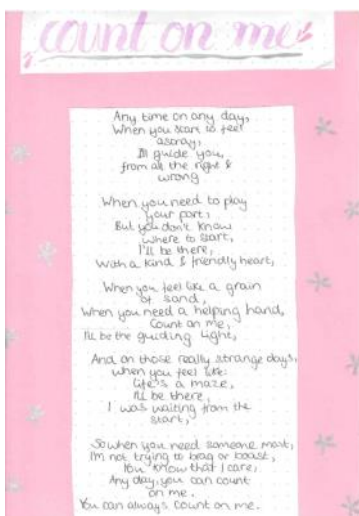 count on me
Any time on any day,
When you start to feel
astray,
I'll guide you,
from all the right &
wrong
When you need to play
your part,
But you don't know
where to start,
I'll be there,
With a kind & friendly heart,
When you feel like a grain
of sand,
When you need a helping hand,
Count on me,
I'll be the guiding light,
And on those really strange days,
When you feel like
life's a maze,
I'll be there,
I was waiting from the
start,
So when you need someone most,
I'm not trying to brag or boast,
You know that I care,
Any day, you can count
on me.
You can always count on me.